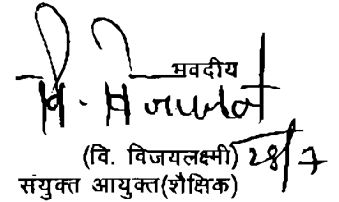 भवदीय
(वि. विजयलक्ष्मी) 28/7
संयुक्त आयुक्त(शैक्षिक)